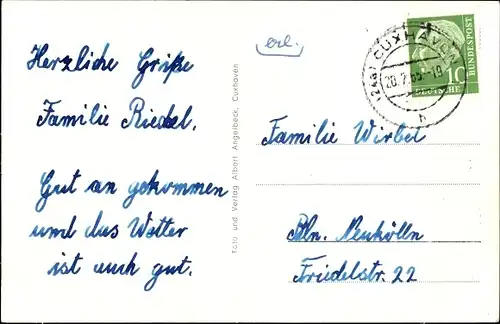 Herzliche Grüße
Familie Riedel.
Gut angekommen
und das Wetter
ist auch gut.
erl.
Foto und Verlag Albert Angelbeck, Cuxhaven
CUXHAVEN
(24a)
h
10
DEUTSCHE
BUNDESPOST
Familie Wirbel
Bln. Neukölln
Friedelstr. 22